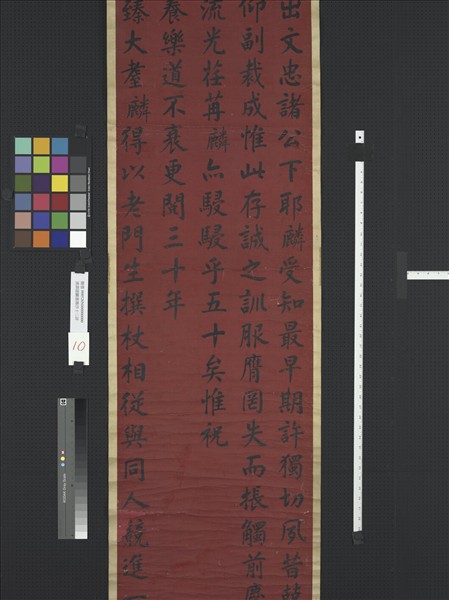 出文忠諸公下耶麟受知最早期許獨切夙昔
仰副裁成惟此存誠之訓服膺罔失而掁觸前塵
流光荏苒麟亦駸駸乎五十矣惟祝
養樂道不衰更閱三十年
臻大耋麟得以老門生撰杖相從與同人競進
10